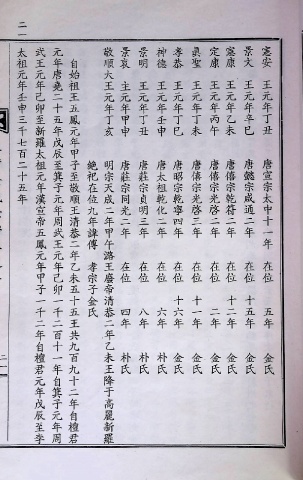 憲安 王元年丁丑 唐宣宗太中十一年 在位 五年 金氏
景文 王元年辛巳 唐懿宗咸通二年 在位 十五年 金氏
憲康 王元年乙未 唐僖宗乾符二年 在位 十二年 金氏
定康 王元年丙午 唐僖宗光啓二年 在位 二年 金氏
眞聖 王元年丁未 唐僖宗光啓三年 在位 十一年 金氏
孝恭 王元年丁巳 唐昭宗乾寧四年 在位 十六年 金氏
神德 王元年壬申 唐太祖乾化二年 在位 六年 朴氏
景明 王元年丁丑 唐莊宗貞明三年 在位 八年 朴氏
景哀 王元年甲申 唐莊宗同光二年 在位 四年 朴氏
敬順大王元年丁亥 明宗天成二年甲午潞王廢帝清泰二年乙未王降于高麗新羅
絶祀在位九年諱傅 孝宗子金氏
自始祖王五鳳元年甲子至敬順王清泰二年乙未五十五王共九百九十二年自檀君
元年唐堯二十五年戊辰至箕子元年周武王元年己卯一千二百十一年自箕子元年周
武王元年己卯至新羅太祖元年漢宣帝五鳳元年甲子一千二年自檀君元年戊辰至李
太祖元年壬申三千七百二十五年
二一